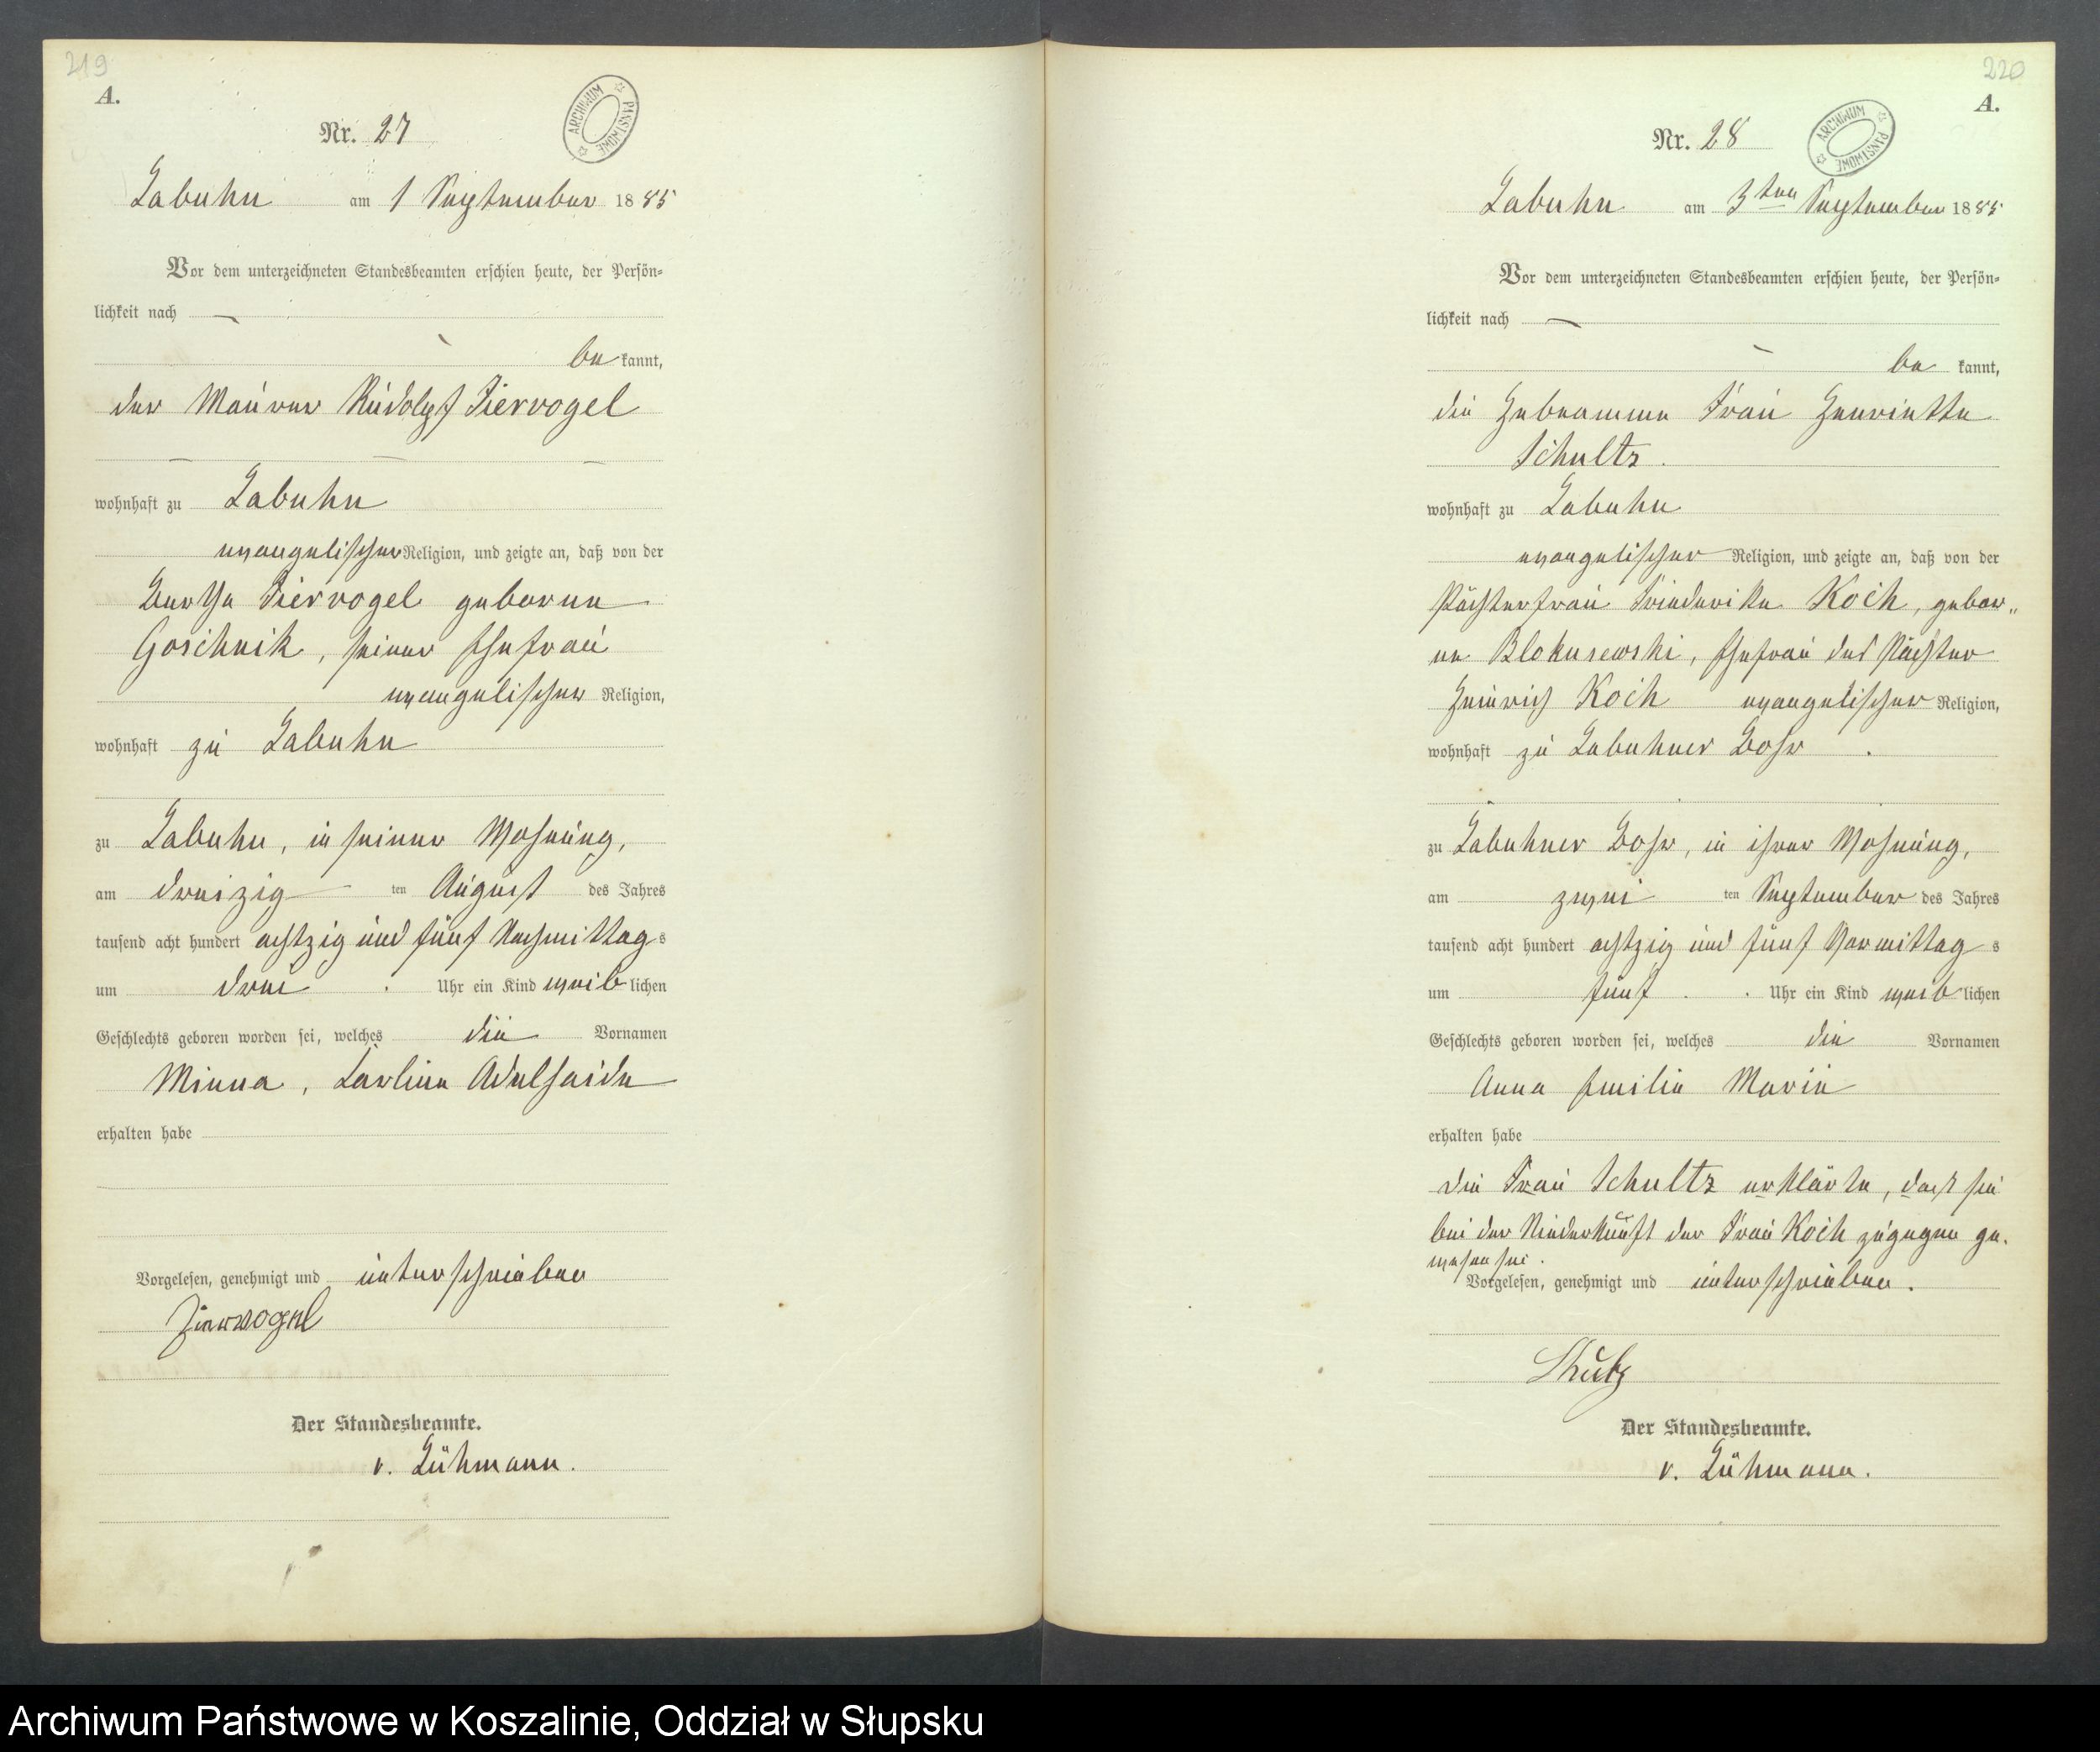 219
A.
ARCHIWUM PAŃSTWOWE
Nr. 27
Labuhn am 1 September 1885
Vor dem unterzeichneten Standesbeamten erschien heute, der Persön-
lichkeit nach
be kannt,
der Maurer Rudolph Ziervogel
wohnhaft zu Labuhn
evangelischer Religion, und zeigte an, daß von der
Bertha Ziervogel geborene
Goschnik, seiner Ehefrau
evangelischer Religion,
wohnhaft zu Labuhn
zu Labuhn, in seiner Wohnung,
am dreizig ten August des Jahres
tausend acht hundert achtzig und fünf Nachmittag s
um drei Uhr ein Kind weib lichen
Geschlechts geboren worden sei, welches die Vornamen
Minna, Adelhaide
erhalten habe
Vorgelesen, genehmigt und unterschrieben
Ziervogel
Der Standesbeamte.
v. Lühmann.
220
A.
ARCHIWUM PAŃSTWOWE
Nr. 28
Labuhn am 3ten September 1885
Vor dem unterzeichneten Standesbeamten erschien heute, der Persön-
lichkeit nach
be kannt,
die Hebeamme Frau Henriette
Schultz.
wohnhaft zu Labuhn
evangelischer Religion, und zeigte an, daß von der
Pächterfrau Friederike Koch, gebor„
ne Blokusewski, Ehefrau des Pächter
Heinrich Koch evangelischer Religion,
wohnhaft zu Labuhner Bohr.
zu Labuhner Bohr, in ihrer Wohnung,
am zwei ten September des Jahres
tausend acht hundert achtzig und fünf Vormittag s
um fünf Uhr ein Kind weib lichen
Geschlechts geboren worden sei, welches die Vornamen
Anna Emilie Marie
erhalten habe
die Frau Schultz erklärte, dast sie
bei der Niederkunft der Frau Koch zugegen ge.
wesen sei.
Vorgelesen, genehmigt und unterschrieben.
Der Standesbeamte.
v. Lühmann.
Archiwum Państwowe w Koszalinie, Oddział w Słupsku